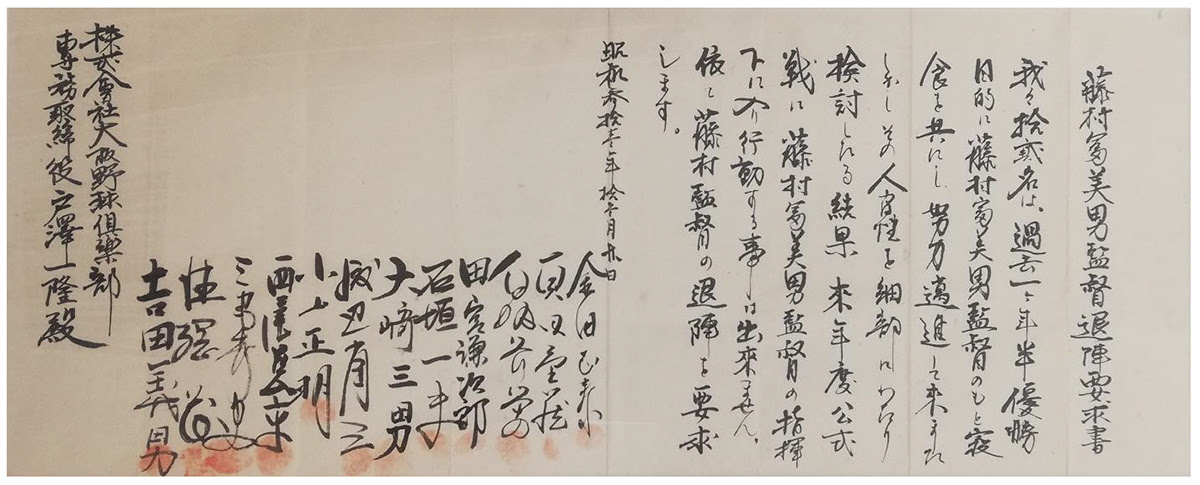 藤村富美男監督退陣要求書
我々拾弐名は、過去一ヶ年半優勝
目的に藤村富美男監督のもと寝
食を共にし努力邁進して来ました
しかしその人間性を細部にわたり
検討したる結果来年度公式
戦に藤村富美男監督の指揮
下に入り行動する事は出来ません。
依って藤村監督の退陣を要求
します。
昭和参拾壱年拾壱月
金田正泰
真田重蔵
白坂長栄
田宮謙次郎
石垣一夫
大崎三男
渡辺省三
小山正明
西
三
吉田義男
株式会社大阪野球倶楽部
専務取締役戸澤一隆殿